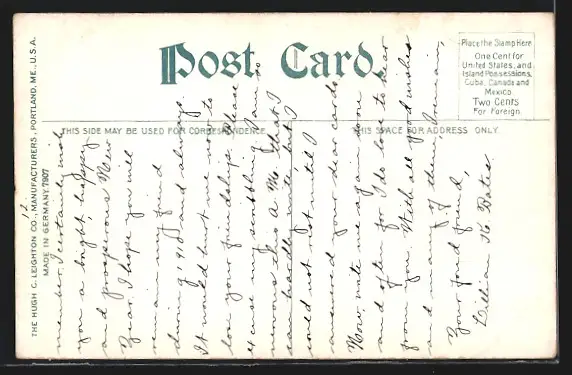 Post Card.
Place the Stamp Here
One Cent for
United States, and
Island Possessions,
Cuba, Canada and
Mexico
Two Cents
For Foreign
THIS SIDE MAY BE USED FOR CORRESPONDENCE
THIS SPACE FOR ADDRESS ONLY.
THE HUGH C. LEIGHTON CO., MANUFACTURERS, PORTLAND, ME., U.S.A.
MADE IN GERMANY. 7807
12
member. I certainly wish
you a bright, happy
and prosperous New
Year. I hope you will
remain my friend
during 1910 and always
It would hurt me not to
lose your friendship. Please
excuse my scribbling I am so
nervous its A. M. that I
can hardly write, but I
could not rest until I
answered your dear card.
Now, write me again soon
and often for I do love to hear
from you. With all good wishes
and many of them, I remain,
Your fond friend,
Lillian K. Bates